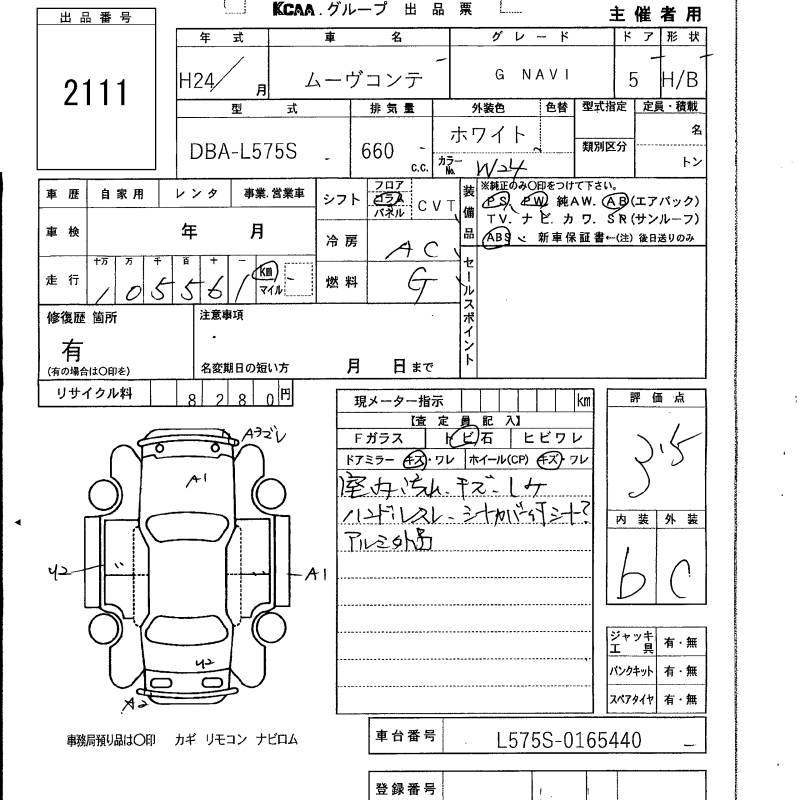 KCAA.グループ 出品票
主催者用
出品番号
2111
年式 車名 グレード ドア 形状
H24/ 月 ムーヴコンテ G NAVI 5 H/B
型式 排気量 外装色 色替 型式指定 定員・積載
DBA-L575S 660 c.c. ホワイト 類別区分 名
カラーNo. W24 トン
車歴 自家用 レンタ 事業.営業車
車検 年 月
走行 十万 万 千 百 十 一
105561 km マイル
シフト フロア コラム パネル CVT
冷房 AC
燃料 G
装備品
※純正のみ〇印をつけて下さい。
PS. PW. 純AW. AB(エアバック)
TV. ナビ. カワ. SR(サンルーフ)
ABS. 新車保証書←(注) 後日送りのみ
セールスポイント
修復歴 箇所
有
(有の場合は〇印を)
注意事項
名変期日の短い方 月 日まで
リサイクル料 8280円
現メーター指示 km
【査定員記入】
Fガラス トビ石 ヒビワレ
ドアミラー キズ・ワレ ホイール(CP) キズ・ワレ
ハンドルスレ
アルミ外品
評価点
3.5
内装 外装
b C
ジャッキ 工具 有・無
パンクキット 有・無
スペアタイヤ 有・無
A3ズレ
A1
U2
A1
U2
A2
事務局預り品は〇印 カギ リモコン ナビロム
車台番号 L575S-0165440
登録番号